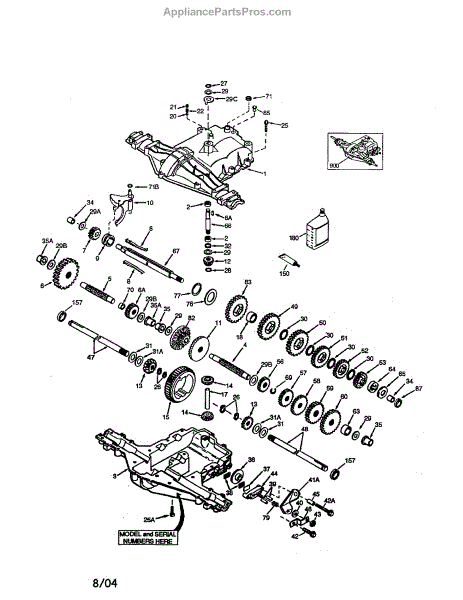 AppliancePartsPros.com
27
29
29C
71
21
22
20
65
25
1
900
71B
10
34
29A
7
9
8
67
2
6A
66
2
32
29
12
28
180
150
35A
29B
6
5
8
70
6A
29B
35A
35
29
82
77
76
11
83
49
18
30
50
30
51
30
52
30
53
64
65
34
67
157
47
31
31A
13
26
15
14
17
14
29B
56
69
57
58
59
60
69
63
29
35
26
13
31A
31
48
157
3
25A
36
38
37
44
39
79
41A
45
42A
40
46
43
42
MODEL and SERIAL
NUMBERS HERE
8/04